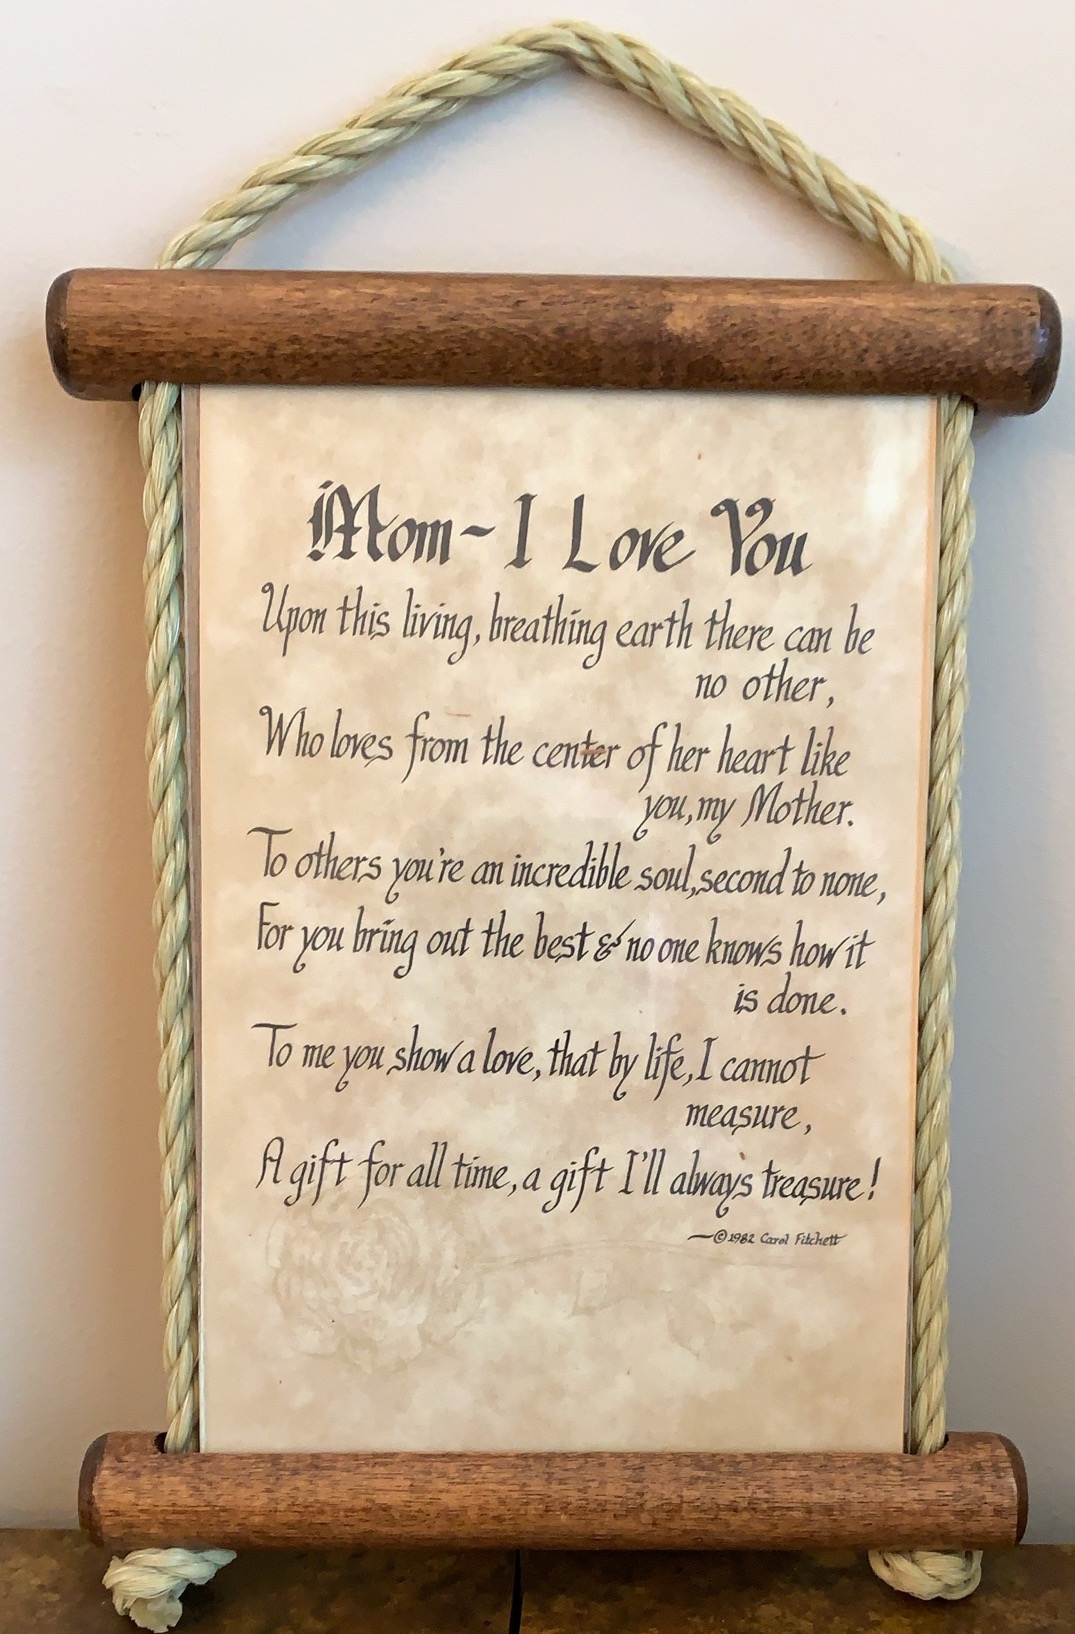 Mom ~ I Love You
Upon this living, breathing earth there can be
no other,
Who loves from the center of her heart like
you, my Mother.
To others you're an incredible soul, second to none,
For you bring out the best & no one knows how it
is done.
To me you show a love, that by life, I cannot
measure,
A gift for all time, a gift I'll always treasure!
—©1982 Carol Fitchett